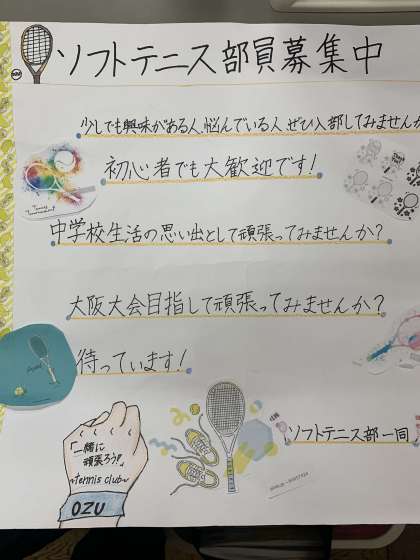 ソフトテニス部員募集中
少しでも興味がある人、悩んでいる人、ぜひ入部してみませんか
初心者でも大歓迎です!
中学校生活の思い出として頑張ってみませんか?
大阪大会目指して頑張ってみませんか?
待っています!
「一緒に
頑張ろう!」
~tennis club~
OZU
ソフトテニス部一同